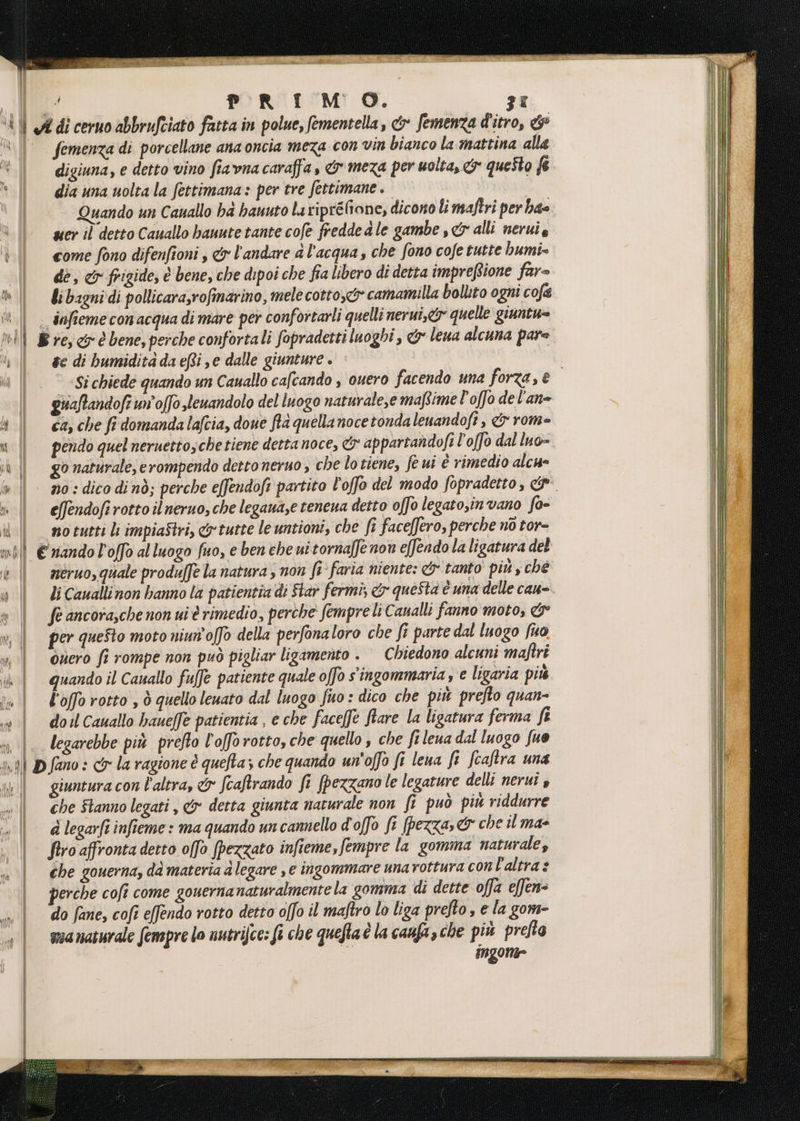 PRIMO. 31
A di ceruo abbrusciato fatta in polue, sementella, & semenza d'itro, &
semenza di porcellane ana oncia meza con vin bianco la mattina alla
digiuna, e detto vino sia vna caraffa, & meza per uolta, & questo se
dia una uolta la settimana: per tre settimane.
Quando un Cauallo ha hauuto la ripresione, dicono li mastri per ha=
uer il detto Cauallo hauute tante cose fredde à le gambe, & alli nerui,
come sono difensioni, & l'andare à l'acqua, che sono cose tutte humi=
de, & frigide, è bene, che dipoi che sia libero di detta impressione far=
li bagni di pollicara, rosmarino, mele cotto, & camamilla bollito ogni cosa
insieme con acqua di mare per confortarli quelli nerui, & quelle giuntu=
B re, & è bene, perche conforta li sopradetti luoghi, & leua alcuna par=
te di humidità da essi, e dalle giunture.
Si chiede quando un Cauallo cascando, ouero facendo una forza, e
guastandosi un'osso, leuandolo del luogo naturale, e massime l'osso de l'an=
ca, che si domanda lascia, doue sta quella noce tonda leuandosi, & rom=
pendo quel neruetto, che tiene detta noce, & appartandosi l'osso dal luo=
go naturale, e rompendo detto neruo, che lo tiene, se ui è rimedio alcu=
no: dico di nò; perche essendosi partito l'osso del modo sopradetto, &
essendosi rotto il neruo, che legaua, e teneua detto osso legato, in vano so=
no tutti li impiastri, & tutte le untioni, che si facessero, perche nō tor=
C nando l'osso al luogo suo, e ben che ui tornasse non essendo la ligatura del
neruo, quale produsse la natura, non si faria niente: & tanto più, che
li Caualli non hanno la patientia di star fermi, & questa è una delle cau=
se ancora, che non ui è rimedio, perche sempre li Caualli fanno moto, &
per questo moto niun'osso della persona loro che si parte dal luogo suo
ouero si rompe non può pigliar ligamento. Chiedono alcuni mastri
quando il Cauallo fusse patiente quale osso s'ingommaria, e ligaria più
l'osso rotto, ò quello leuato dal luogo suo: dico che più presto quan=
do il Cauallo hauesse patientia, e che facesse stare la ligatura ferma si
legarebbe più presto l'osso rotto, che quello, che si leua dal luogo suo
D sano: & la ragione è questa; che quando un'osso si leua si scastra una
giuntura con l'altra, & scastrando si spezzano le legature delli nerui,
che stanno legati, & detta giunta naturale non si può più riddurre
à legarsi insieme: ma quando un cannello d'osso si spezza, & che il ma=
stro affronta detto osso spezzato insieme, sempre la gomma naturale,
che gouerna, dà materia à legare, e ingommare una rottura con l'altra:
perche cosi come gouerna naturalmente la gomma di dette ossa essen=
do sane, cosi essendo rotto detto osso il mastro lo liga presto, e la gom=
ma naturale sempre lo nutrisce: si che questa è la causa, che più presto
ingom=